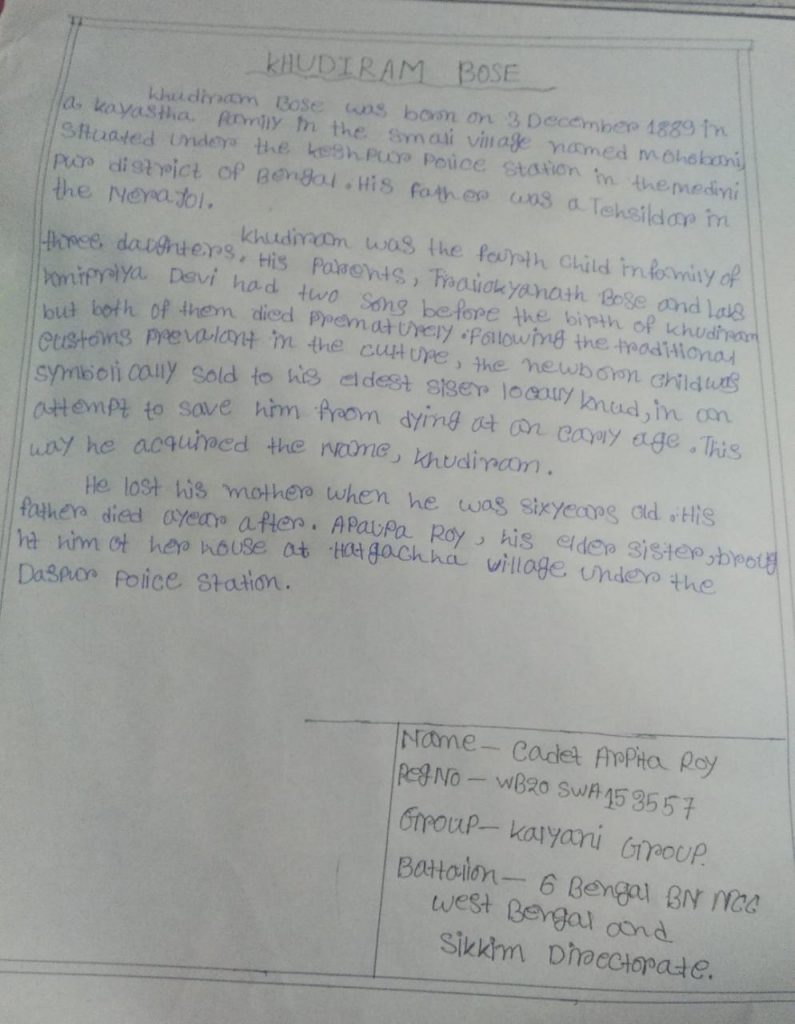 KHUDIRAM BOSE
Khudiram Bose was born on 3 December 1889 in
a kayastha family in the small village named Mohobani,
situated under the keshpur police station in the medini
pur district of Bengal. His father was a Tehsildar in
the Nerajol.
Khudiram was the fourth child in family of
three daughters. His parents, Trailokyanath Bose and Laks
hmipriya Devi had two sons before the birth of khudiram
but both of them died prematurely. Following the traditional
customs prevalant in the culture, the newborn child was
symbolically sold to his eldest siser locally khud, in an
attempt to save him from dying at an early age. This
way he acquired the name, khudiram.
He lost his mother when he was six years old. His
father died a year after. Aparupa Roy, his elder sister, broug
ht him at her house at Hatgachha village under the
Daspur Police Station.
Name - Cadet Arpita Roy
Reg No - WB20 SWA 153557
Group - Kalyani Group.
Battalion - 6 Bengal BN NCC
West Bengal and
Sikkim Directorate.